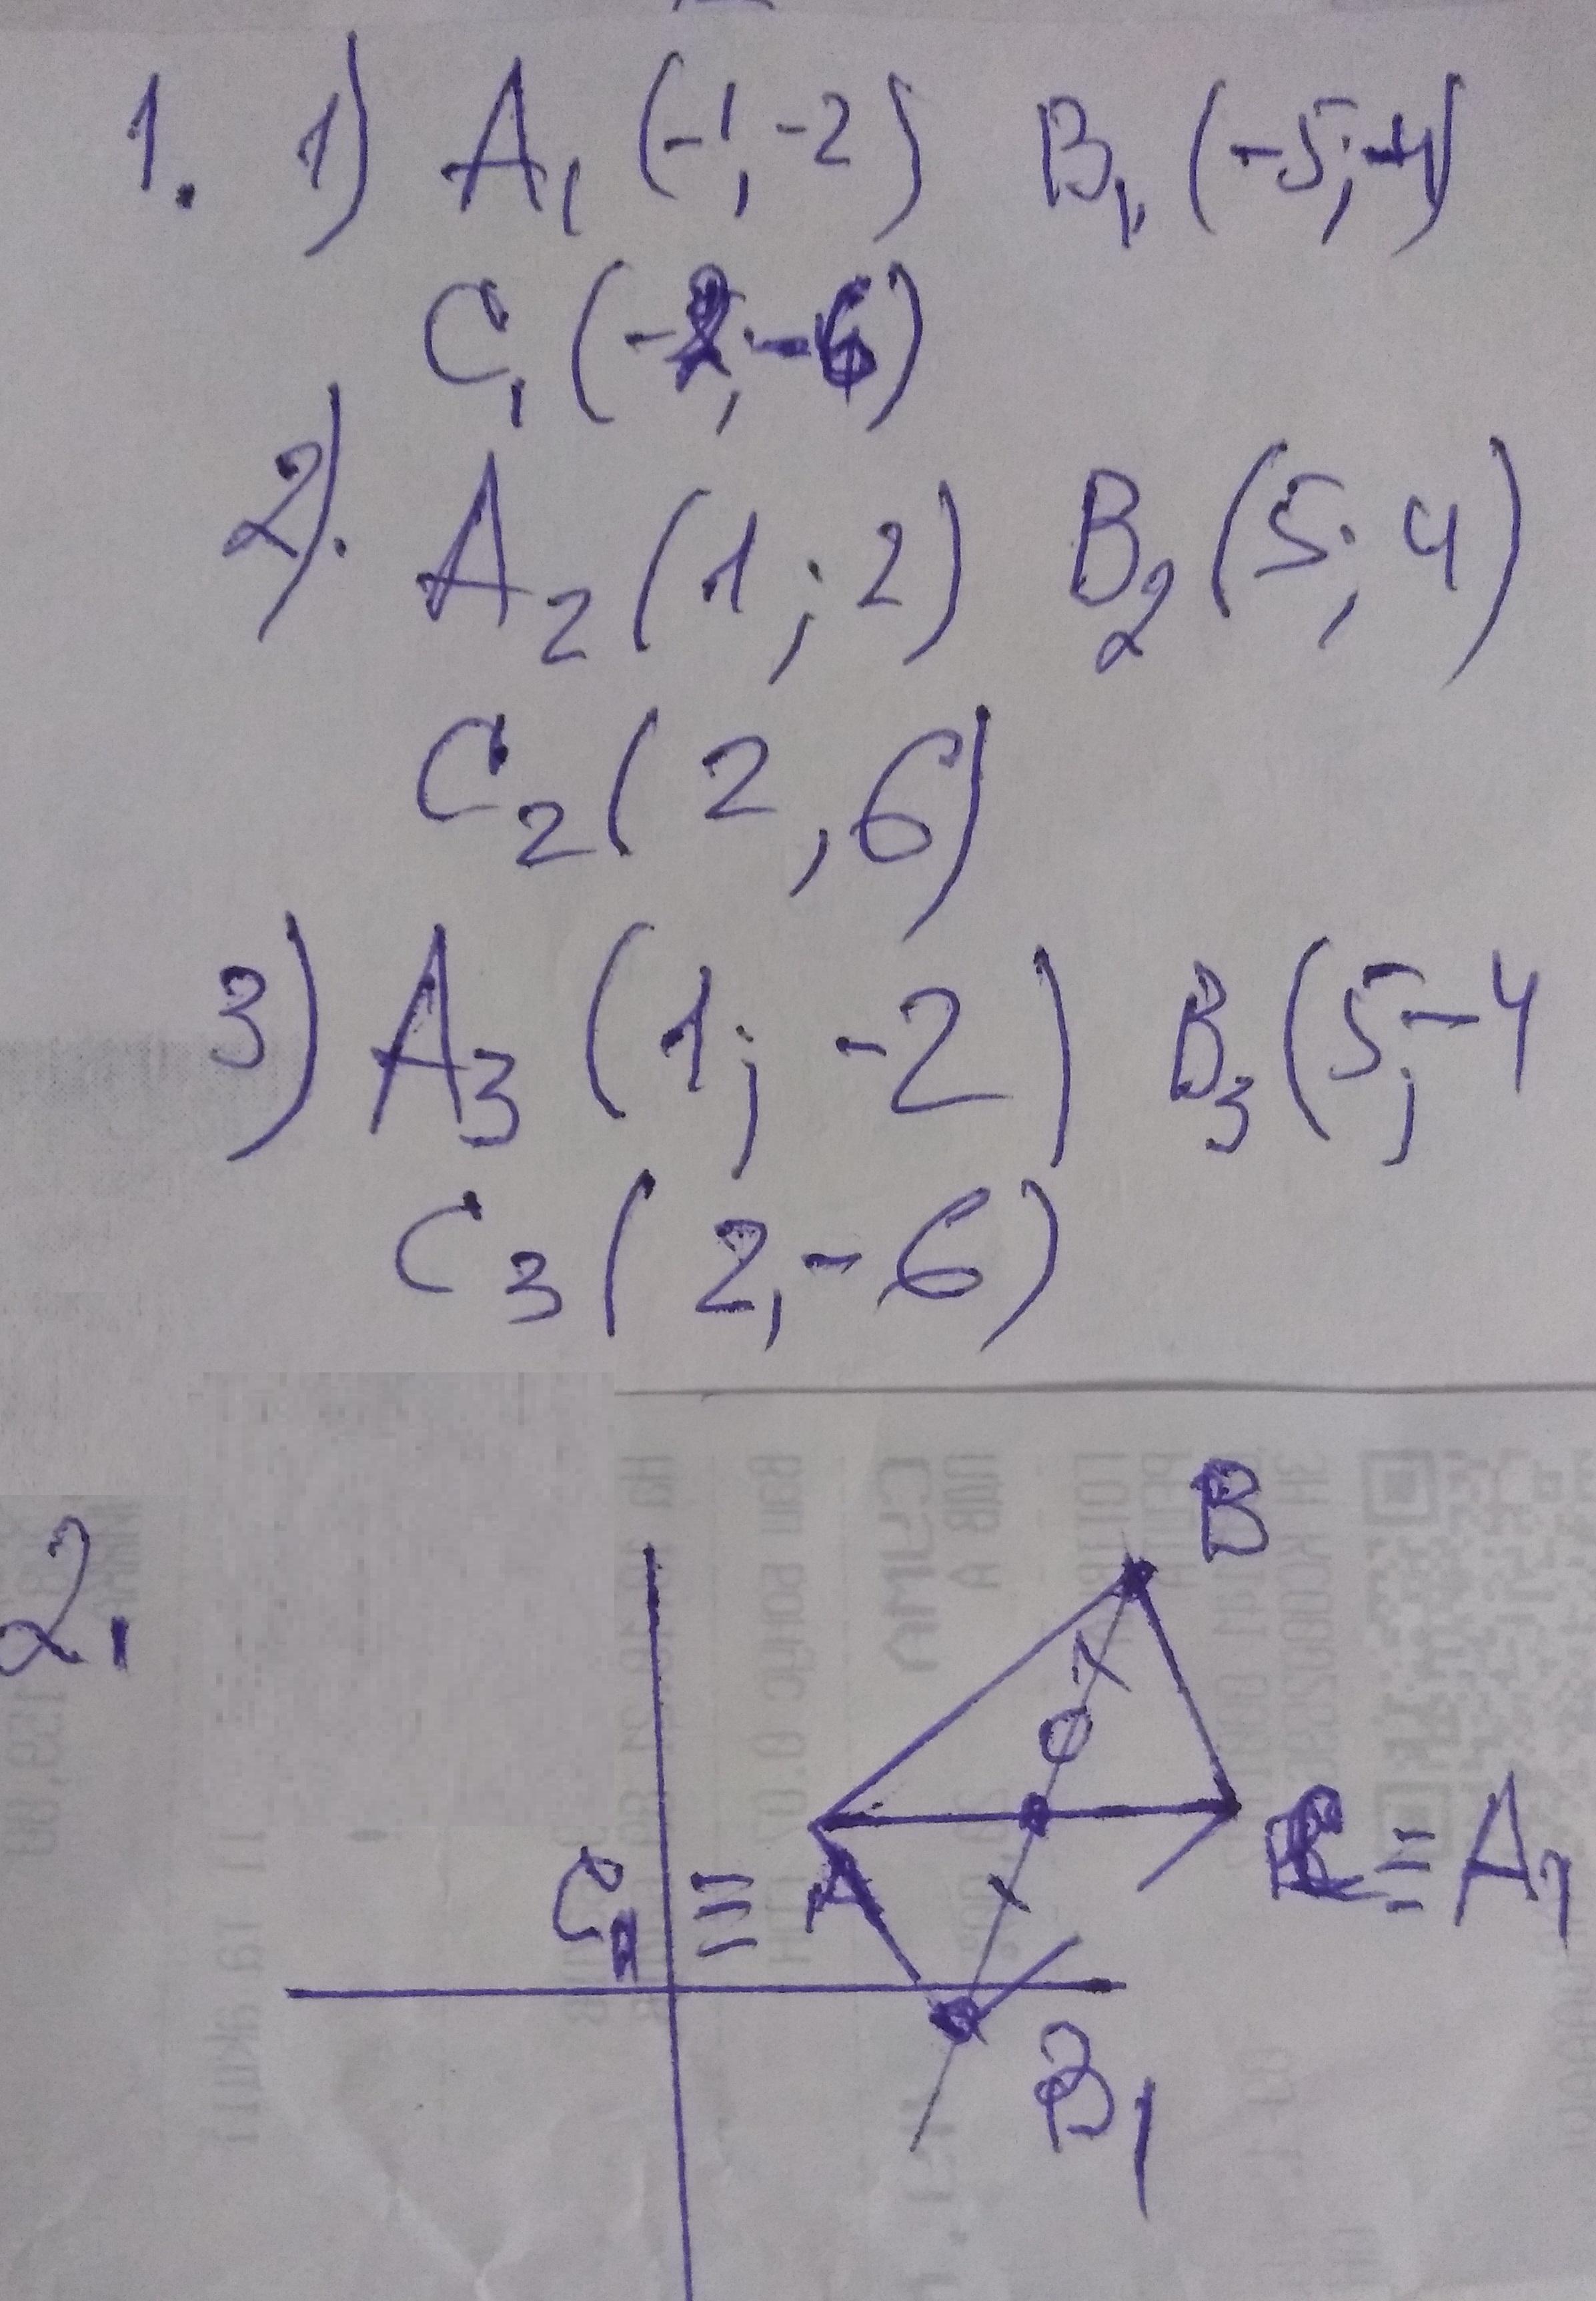 1. 1) A₁ (-1; -2) B₁ (-5; -4)
C₁ (-2; -6)
2). A₂ (1; 2) B₂ (5; 4)
C₂ (2, 6)
3) A₃ (1; -2) B₃ (5; -4
C₃ (2, -6)
2.
B
O
C₁ ≡ A
C ≡ A₁
B₁